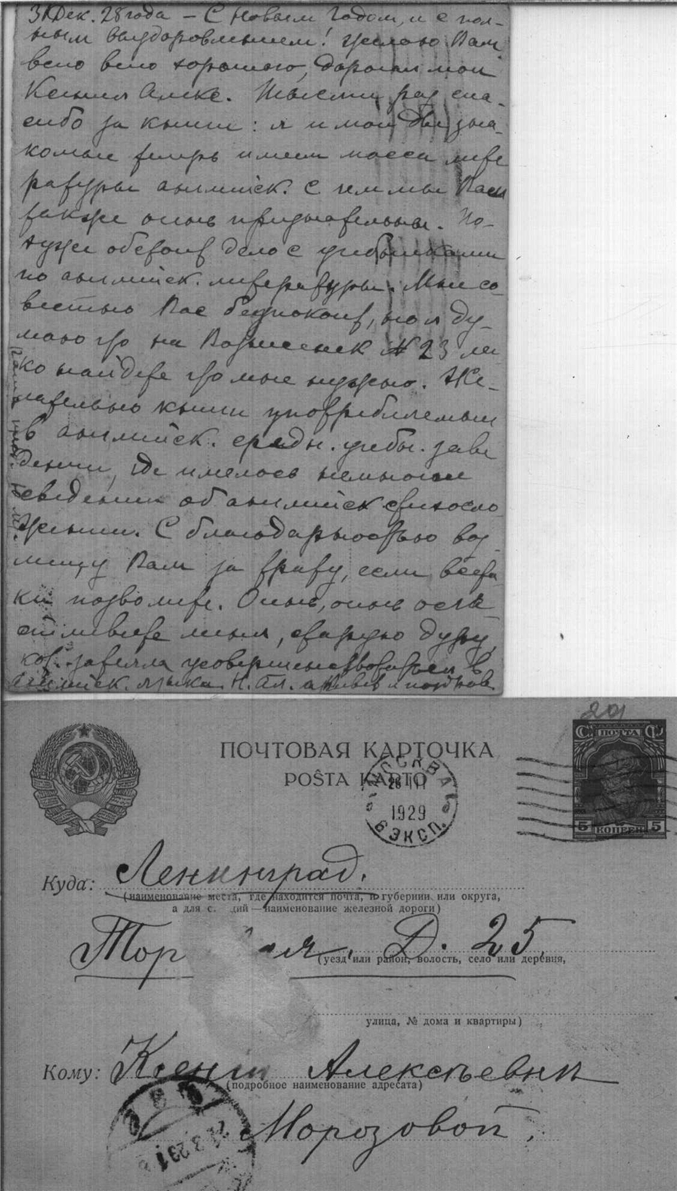 31 Дек. 28 года – С Новым Годом, и с пол-
ным выздоровлением! Желаю Вам
всего всего хорошего, дорогая моя
Ксения Алекс. Тысячи раз спа-
сибо за книги: я и мои две зна-
комые теперь имеем массу лите
ратуры английск. с чем мы Вам
также очень признательны.
дело с учебниками
по английск. литературы. Мне со
вестно Вас беспокоить, но я ду-
маю что на Вознесенск № 23 лег
ко найдете что мне нужно. Же-
лательно книги употребляемые
в английск. средн. учебн. заве
дении, где имелось немногие
сведения об английск стихосло
жении. С благодарностью воз
мещу Вам за трату, если
позволите. Очень, очень осча
стливите меня, старую дуру,
кот. усовершенствоваться в
английск. языке.
ПОЧТОВАЯ КАРТОЧКА
POŜTA KARTO
ПОЧТА
5 КОПЕЕК 5
МОСКВА
1929
6 ЭКСП.
Куда: Ленинград.
(наименование места, где находится почта, и губернии или округа,
а для станций — наименование железной дороги)
Д. 25,
(уезд или район, волость, село или деревня,
улица, № дома и квартиры)
Кому: Ксении Алексеевне
(подробное наименование адресата)
Морозовой.